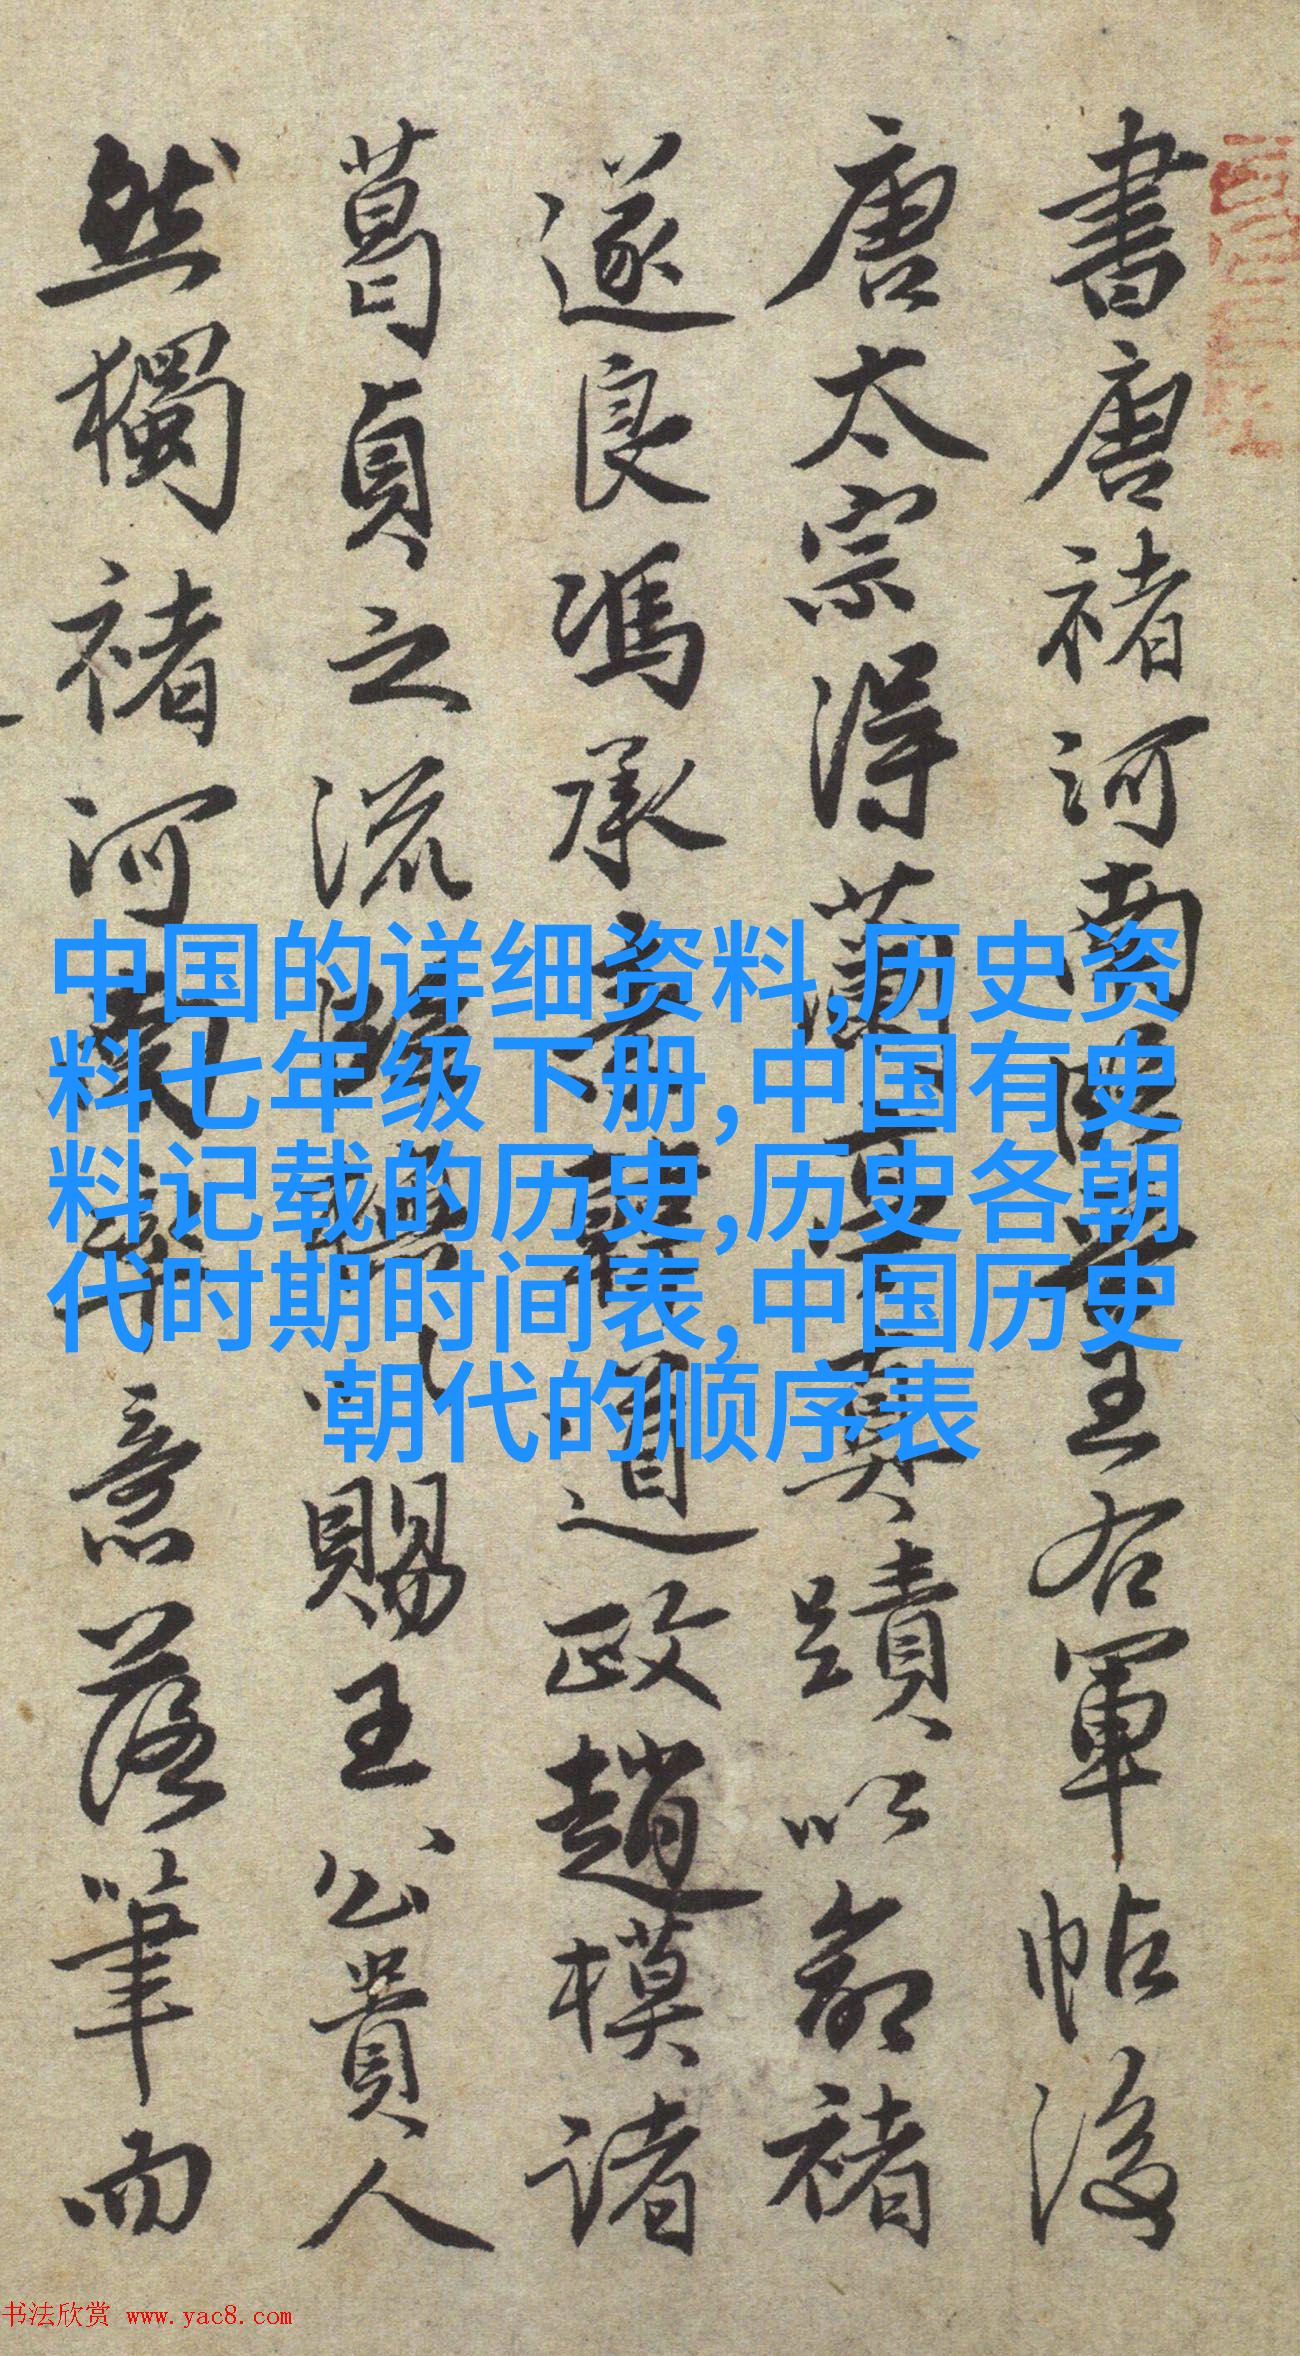 書唐褚河南王右軍帖後
唐太宗得蘭亭真蹟以命褚
遂良馮承素韓道政趙模諸
葛貞之流以賜王公貴人
然獨褚河南率意落筆而
中国的详细资料,历史资
料七年级下册,中国有史
料记载的历史,历史各朝
代时期时间表,中国历史
朝代的顺序表
书法欣赏 www.yac8.com